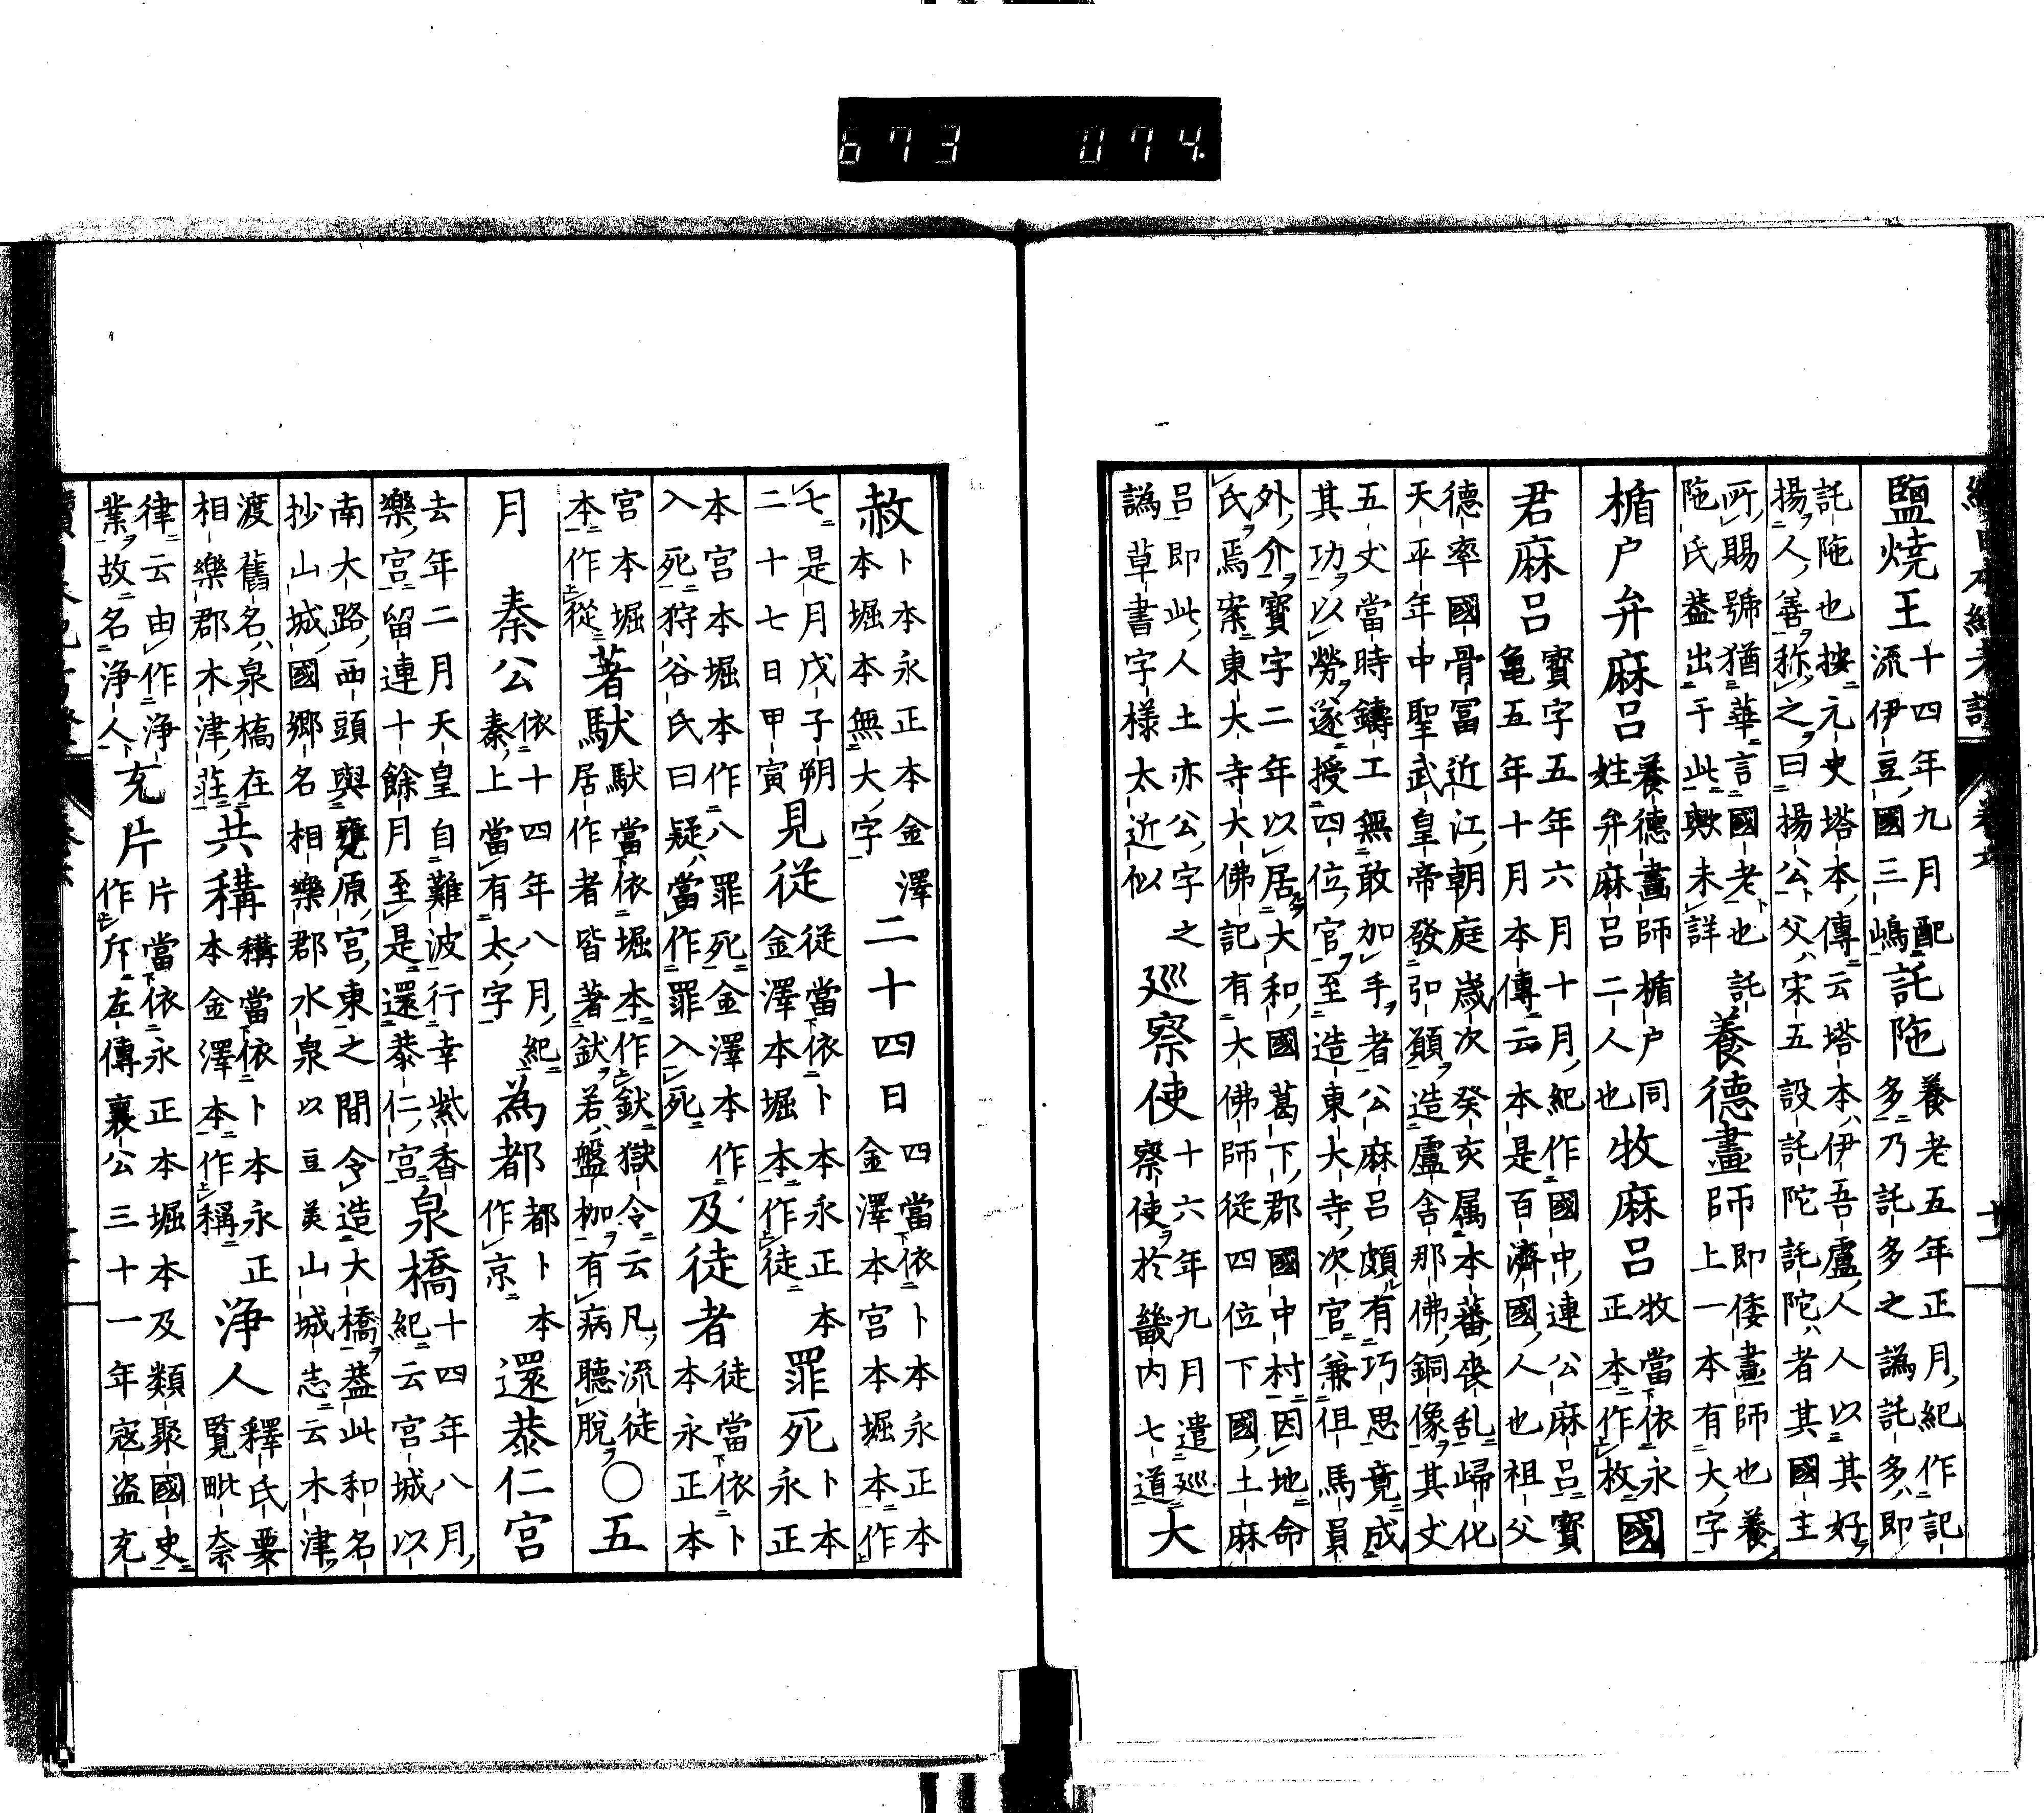 673 074.
鹽燒王 十四年九月配
流伊豆國三嶋 託陁 養老五年正月紀作記
多乃託多之譌託多即
託陁也按元史塔本傳云塔本伊吾盧人人以其好
揚人善称之曰揚公父宋五設託陀託陀者其國主
所賜號猶華言國老也託
陁氏葢出于此歟未詳 養德畫師 即倭畫師也養
上一本有大字
楯户弁麻呂 養德畫師楯户同
姓弁麻呂二人也 牧麻呂 牧當依永
正本作枚 國
君麻呂 寳字五年六月十月紀作國中連公麻呂寳
亀五年十月本傳云本是百濟國人也祖父
德率國骨冨近江朝庭歳次癸亥属本蕃喪乱歸化
天平年中聖武皇帝發弘願造盧舎那佛銅像其丈
五丈當時鑄工無敢加手者公麻呂頗有巧思竟成
其功以勞遂授四位官至造東大寺次官兼但馬員
外介寳字二年以居大和國葛下郡國中村因地命
氏焉案東大寺大佛記有大佛師従四位下國土麻
呂即此人土亦公字之
譌草書字様太近似 巡察使 十六年九月遣巡
察使於畿内七道 大
赦 卜本永正本金澤
本堀本無大字 二十四日 四當依卜本永正本
金澤本宮本堀本作
七是月戊子朔
二十七日甲寅 見従 従當依卜本永正本
金澤本堀本作徒 罪死 卜本
永正
本宮本堀本作八罪死金澤本作
入死狩谷氏曰疑當作罪入死 及徒者 徒當依卜
本永正本
宮本堀
本作従 著馱 馱當依堀本作釱獄令云凡流徒
居作者皆著釱若盤枷有病聴脱 ○五
月 秦公 依十四年八月紀
秦上當有太字 為都 都卜本
作京 還㳟仁宮
去年二月天皇自難波行幸紫香
樂宮留連十餘月至是還㳟仁宮 泉橋 十四年八月
紀云宮城以
南大路西頭與甕原宮東之間令造大橋葢此和名
抄山城國郷名相樂郡水泉以豆美山城志云木津
渡舊名泉橋在
相樂郡木津荘 共稱 稱當依卜本永正
本金澤本作稱 浄人 釋氏要
覧毗奈
律云由作浄
業故名浄人 充片 片當依永正本堀本及類聚國史
作斥左傳襄公三十一年寇盗充